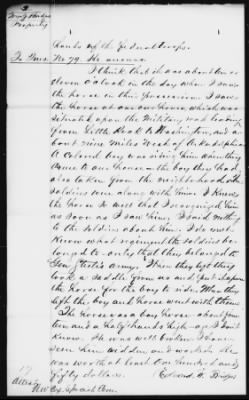 hands of the federal troops.
To Ques. No 79. He answers
I think that it was about ten or
eleven o'clock in the day when I saw
the horse in their possession. I saw
the horse at our own house which was
situated upon the Military road leading
from Little Rock to Washington, and a-
bout nine miles West of Arkadelphia
A Colored boy was riding him when they
came to our house. The boy they had
also taken from the neighborhood. The
soldiers were along with him. I knew
the horse so well that I recognized him
as soon as I saw him. I said nothing
to the soldiers about him. I do not
know what regiment the soldiers be-
longed to - only that they belonged to
Gen. Steele's army. When they left they
took a saddle from us and put it upon
the horse for the boy to ride. When they
left the boy and horse went with them.
The horse was a bay horse about four-
teen and a half hands high - age I don't
know. He was well broken. I have
seen him ridden and worked. He
was worth at least one hundred and
fifty dollars.
Attest
Special Com.